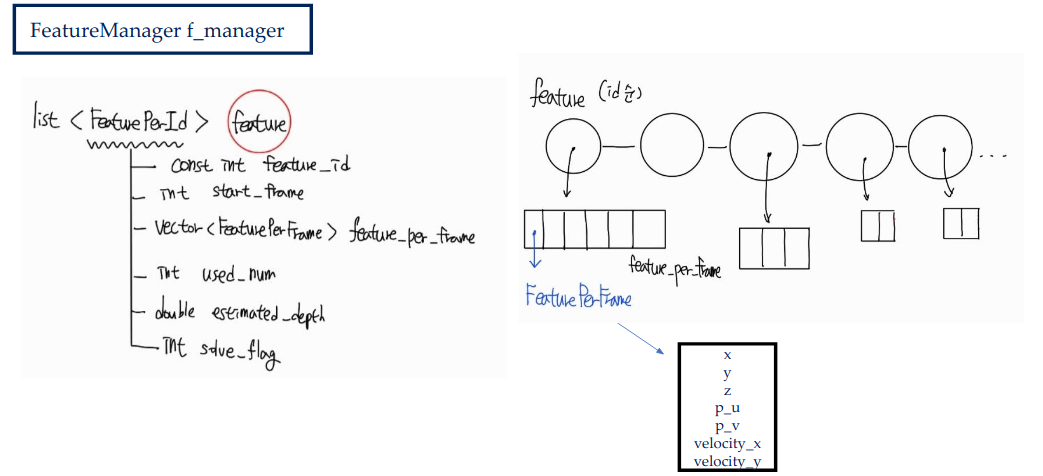 FeatureManager f_manager
list <FeaturePerId> feature
const int feature_id
int start_frame
vector<FeaturePerFrame> feature_per_frame
int used_num
double estimated_depth
int solve_flag
feature (id순)
...
feature_per_frame
FeaturePerFrame
x
y
z
p_u
p_v
velocity_x
velocity_y